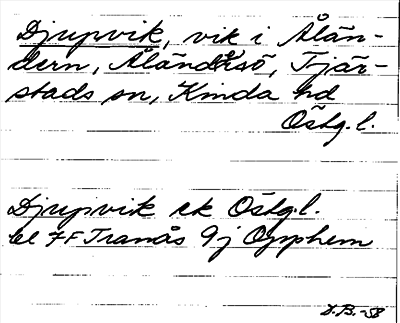 Djupvik, vik i Ålän-
dern, Åländersö, Tjär-
stads sn, Kinda hd
Östg.l.
Djupvik ek Östg.l.
bl 7F Tranås 9j Opphem
D.B.-58